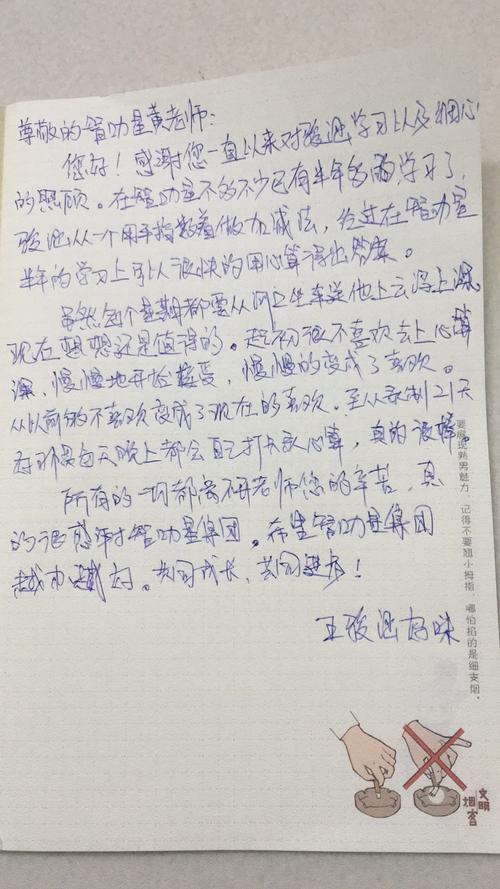 尊敬的智力星黄老师:
您好！感谢您一直以来对骏 学习以及细心
的照顾。在智力星不知不 已有半年的 学习了,
骏 从一个用手指数着做加减法, 经过在智力星
半年的学习上可以很快的用心算得出答案。
虽然每个星期都要从 坐车送他上云浮上课
现在想想还是值得的。起初很不喜欢去上心算
课, 慢慢地开始接受, 慢慢的变成了喜欢。
从以前的不喜欢变成了现在的喜欢。至从录制21天
好习惯每天晚上都会自己打卡录心算, 真的很棒。
所有的一切都离不开老师您的辛苦, 真
的很感谢智力星集团。希望智力星集团
越办越好。共同成长, 共同进步!
王骏 妈咪
要展现熟男魅力, 记得不要翘小拇指, 哪怕掐的是细支烟。
文明
烟客